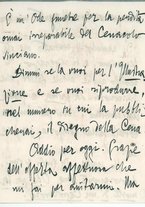 È un' Ode funebre per la perdita
omai irreparabile del Cenacolo
vinciano.
Dimmi se la vuoi per l'Illustra
zione e se vuoi riprodurre,
nel numero in cui la pubbli
cherai, il disegno della Cena
Addio per oggi. Grazie
dell'offerta affettuosa che
mi fai per aiutarmi. Ma